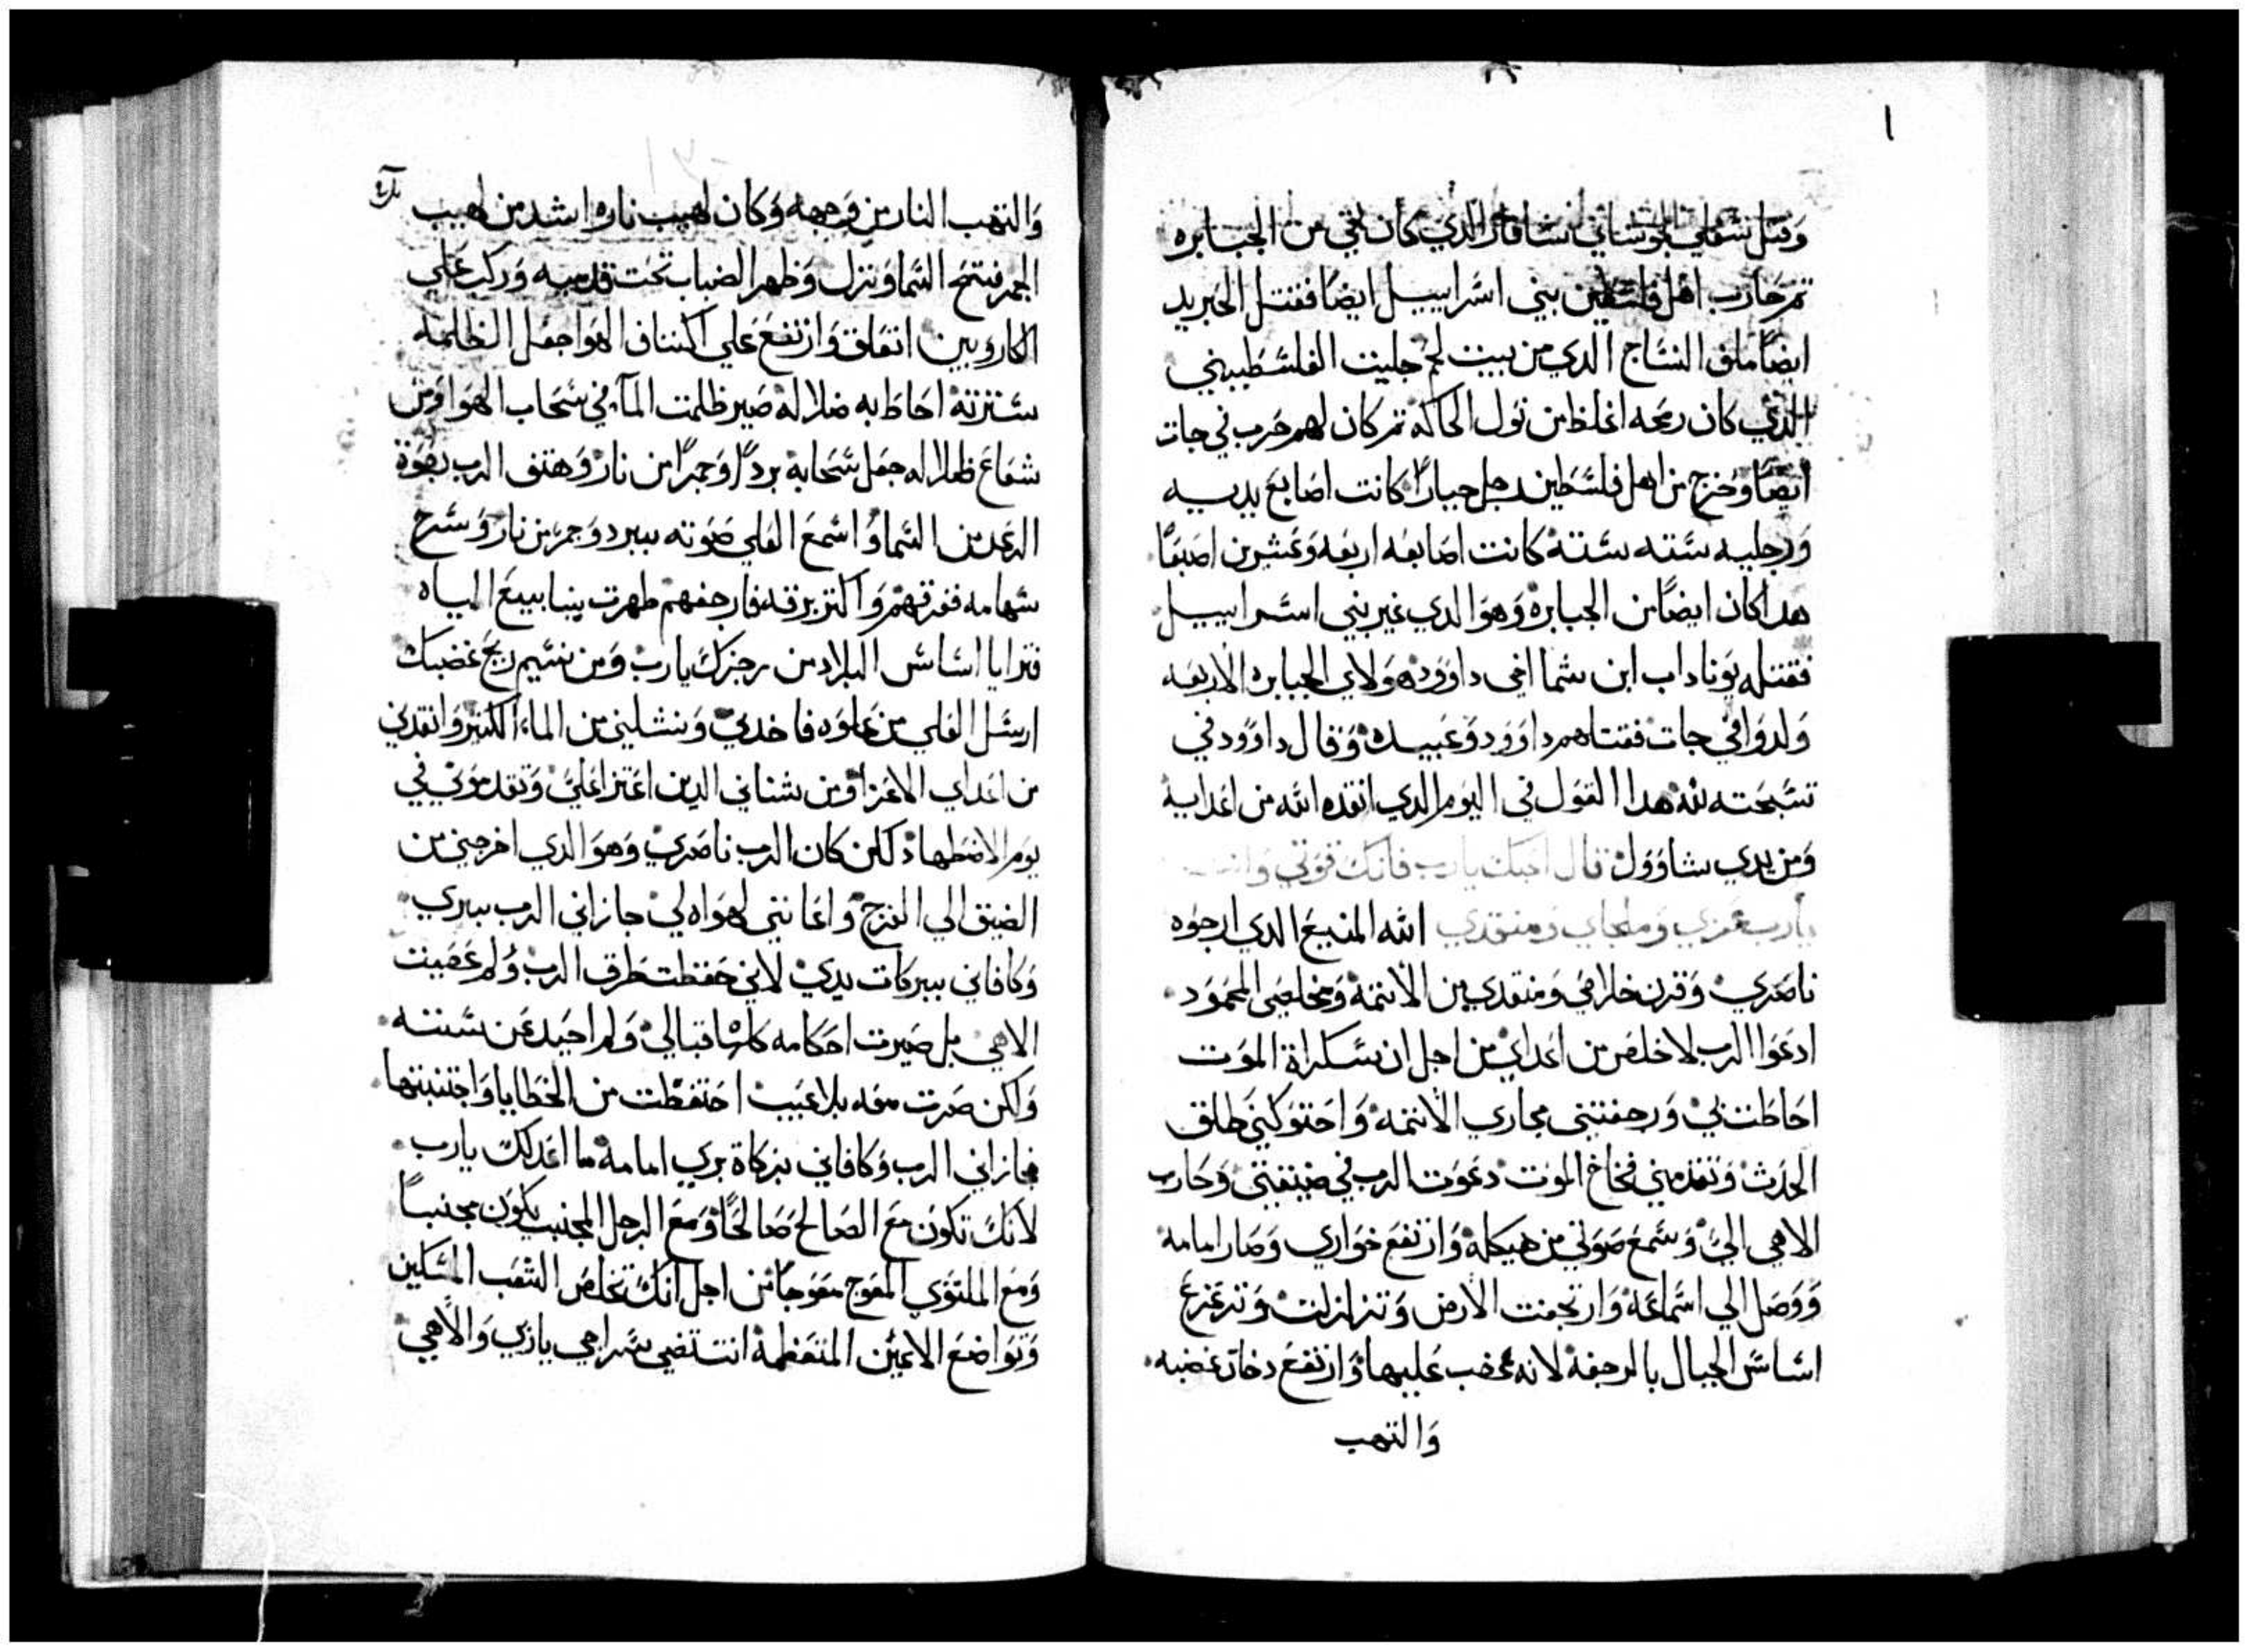 ا
وقتل شقلي الجوشاني لساقار الذي كان بقي من الجبابره
ثم حارب اهل فلسطين بني اسراييل ايضًا فقتل الحبريد
ايضًا ملف النساج الدي من بيت لحم جليت الفلسطيني
الذي كان رمحه اغلظ من نول الحاكه ثم كان لهم حرب في جات
ايضًا وخرج من اهل فلسطين رجل جبارًا كانت اصابع يديه
ورجليه سته سته كانت اصابعه اربعه وعشرين اصبعًا
هدا كان ايضًا من الجبابرة وهو الدي غير بني اسراييل
فقتله يوناداب ابن شما اخي داوود هولاي الجبابره الاربعه
ولدوا في جات فقتلهم داوود وعبيده وقال داوود في
تسبحته لله هدا القول في اليوم الدي انقده الله من اعدايه
ومن يدي شاوول قال احبك يا رب فانك قوتي وانت
يارب عزي وملجاي ومنقدي الله المنيع الدي ارجوه
ناصري وقرن خلاصي ومنقدي من الأتمة ومخلصي المحمود
ادعوا الرب لاخلص من اعداي من اجل ان سكراة الموت
احاطت بي ورجفتني مجاري الأتمة واحتوكني طلق
الحدث وتقدمني فخاخ الموت دعوت الرب في ضيقتي وحارب
الاهي الي وسمع صوتي من هيكله وارتفع خواري وصار امامه
ووصل الي اسماعه وارتجفت الارض وتزلزلت وتزعزع
اساس الجبال بالرجفة لانه غضب عليها وارتفع دخان غضبه
والتهب
والتهب النار من وجهه وكان لهيب ناره اشد من لهيب
الجمر فتح السما ونزل وظهر الضباب تحت قدميه وركب علي
الكاروبين اتعلق وارتفع علي اكتاف الهوا جعل الظلمه
سترته احاط به ضلاله صير ظلمت المآء في سحاب الهوا ومن
شعاع ظلاله جعل سحابه بردًا وجمرًا من نار وهتف الرب بقوة
الرعد من السما واسمع العلي صوته ببرد وجمر من نار وسرح
سهامه ففرقهم واكثر برقه فارجفهم ظهرت ينابييع المياه
فترايا اساس البلاد من رجزك يارب ومن نسيم ريح غضبك
ارسل العلي من علوه فاخدني ونشلني من الماء الكثير وانقدني
من اعداي الاعزا ومن شناني الدين اعتزا علي وتقدموني في
يوم الاضطهاد لكن كان الرب ناصري وهو الدي اخرجني من
الضيق الي الفرج واغاتني لهواه لي جازاني الرب ببري
وكافاني ببركات يدي لاني حفظت طرق الرب ولم عصيت
الاهي بل صيرت احكامه كلها قبالي ولم احيد عن سنته
ولكن صرت معه بلا عيب احتفظت من الخطايا واجتنبتها
فجازاني الرب وكافاني بزكاة بري امامه ما اعدلك يارب
لانك تكون مع الصالح صالحًا ومع الرجل المجنب يكون مجنبًا
ومع الملتوي المعوج معوجًا من اجل انك تخلص الشعب المسكين
وتواضع الاعين المتعظمة انت تضي سراجي يا ربي والاهي